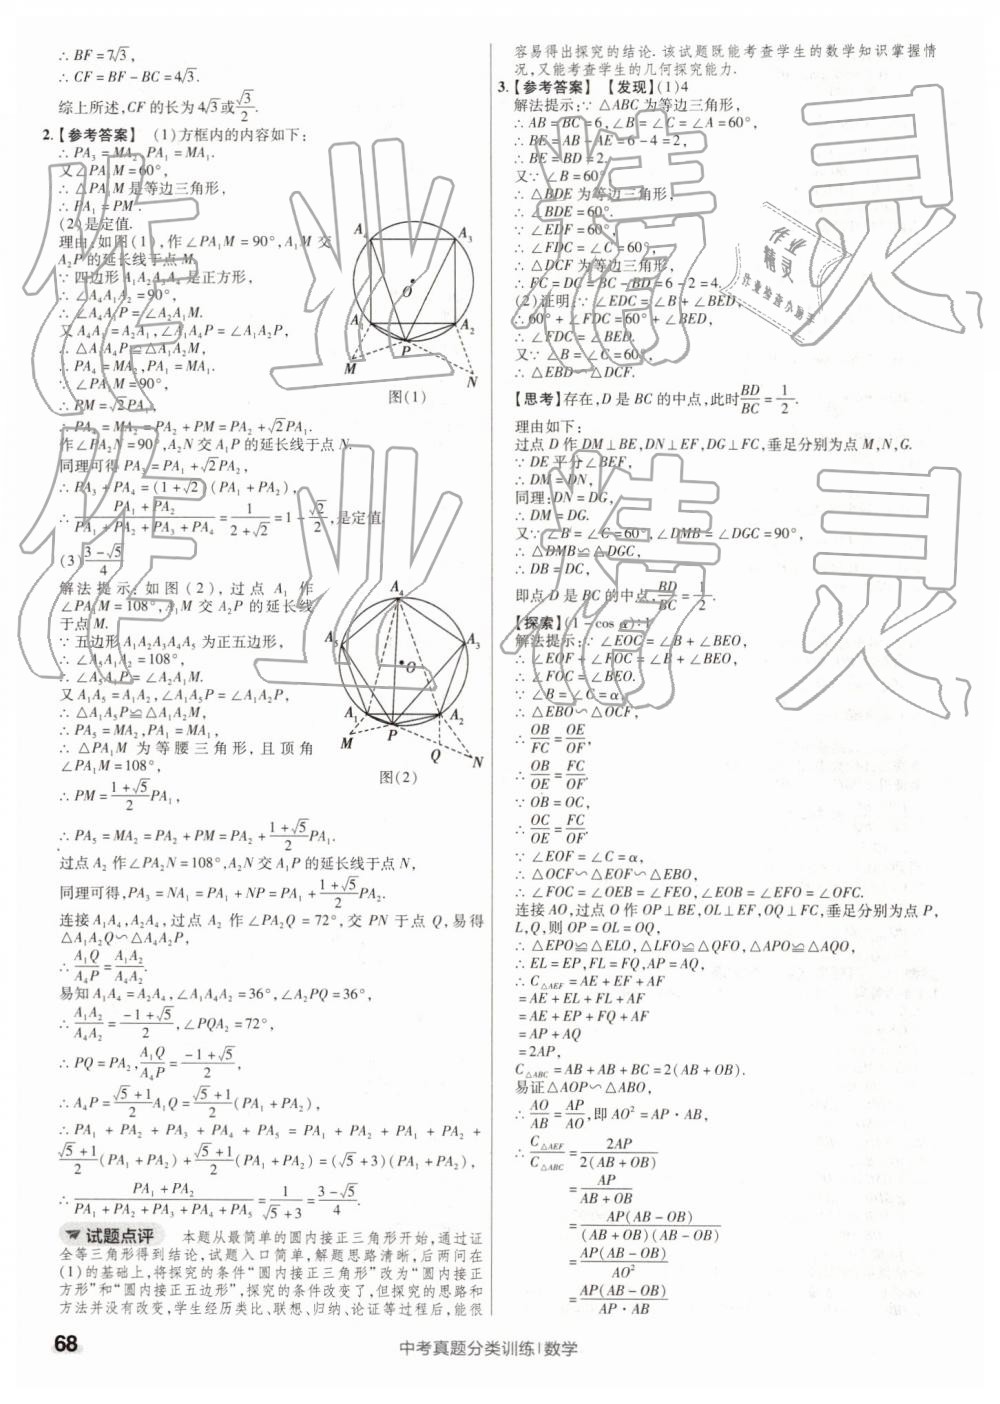 ∴ BF=7√3,
∴ CF=BF-BC=4√3.
综上所述,CF的长为4√3或√3/2.
2.【参考答案】 (1)方框内的内容如下:
∴ PA₃=MA₂,PA₁=MA₁.
又∠PA₁M=60°,
∴ △PA₁M是等边三角形,
∴ PA₁=PM.
(2)是定值.
理由:如图(1),作∠PA₁M=90°,A₁M交
A₂P的延长线于点M.
∵ 四边形A₁A₂A₃A₄是正方形,
∴ ∠A₄A₁A₂=90°,
∴ ∠A₄A₁P=∠A₂A₁M.
又A₄A₁=A₂A₁,∠A₁A₄P=∠A₁A₂P,
∴ △A₁A₄P≌△A₁A₂M,
∴ PA₄=MA₂,PA₁=MA₁.
∵ ∠PA₁M=90°,
∴ PM=√2PA₁,
∴ PA₄=MA₂=PA₂+PM=PA₂+√2PA₁.
作∠PA₂N=90°,A₂N交A₁P的延长线于点N.
同理可得PA₃=PA₁+√2PA₂,
∴ PA₃+PA₄=(1+√2)(PA₁+PA₂),
∴ (PA₁+PA₂)/(PA₁+PA₂+PA₃+PA₄)=1/(2+√2)=1-√2/2,是定值.
(3)(3-√5)/4
解法提示:如图(2),过点A₁作
∠PA₁M=108°,A₁M交A₂P的延长线
于点M.
∵ 五边形A₁A₂A₃A₄A₅为正五边形,
∴ ∠A₅A₁A₂=108°,
∴ ∠A₅A₁P=∠A₂A₁M.
又A₁A₅=A₁A₂,∠A₁A₅P=∠A₁A₂P,
∴ △A₁A₅P≌△A₁A₂M,
∴ PA₅=MA₂,PA₁=MA₁,
∴ △PA₁M为等腰三角形,且顶角
∠PA₁M=108°,
∴ PM=(1+√5)/2PA₁,
∴ PA₅=MA₂=PA₂+PM=PA₂+(1+√5)/2PA₁.
过点A₂作∠PA₂N=108°,A₂N交A₁P的延长线于点N,
同理可得,PA₃=NA₁=PA₁+NP=PA₁+(1+√5)/2PA₂.
连接A₁A₄,A₂A₄,过点A₂作∠PA₂Q=72°,交PN于点Q,易得
△A₁A₂Q∽△A₄A₂P,
∴ A₁Q/A₄P=A₁A₂/A₄A₂.
易知A₁A₄=A₂A₄,∠A₁A₄A₂=36°,∠A₂PQ=36°,
∴ A₁A₂/A₄A₂=(-1+√5)/2,∠PQA₂=72°,
∴ PQ=PA₂,A₁Q/A₄P=(-1+√5)/2,
∴ A₄P=(√5+1)/2A₁Q=(√5+1)/2(PA₁+PA₂),
∴ PA₁+PA₂+PA₃+PA₄+PA₅=PA₁+PA₂+PA₁+PA₂+
(√5+1)/2(PA₁+PA₂)+(√5+1)/2(PA₁+PA₂)=(√5+3)(PA₁+PA₂),
∴ (PA₁+PA₂)/(PA₁+PA₂+PA₃+PA₄+PA₅)=1/(√5+3)=(3-√5)/4.
试题点评 本题从最简单的圆内接正三角形开始,通过证
全等三角形得到结论,试题入口简单,解题思路清晰,后两问在
(1)的基础上,将探究的条件“圆内接正三角形”改为“圆内接正
方形”和“圆内接正五边形”,探究的条件改变了,但探究的思路和
方法并没有改变,学生经历类比、联想、归纳、论证等过程后,能很
A₄
A₃
O
A₁
A₂
P
M
N
图(1)
A₄
A₅
A₃
O
A₁
A₂
M
P
Q
N
图(2)
容易得出探究的结论.该试题既能考查学生的数学知识掌握情
况,又能考查学生的几何探究能力.
3.【参考答案】 【发现】(1)4
解法提示:∵ △ABC为等边三角形,
∴ AB=BC=6,∠B=∠C=∠A=60°,
∴ BE=AB-AE=6-4=2,
∴ BE=BD=2.
又∵ ∠B=60°,
∴ △BDE为等边三角形,
∴ ∠BDE=60°.
∵ ∠EDF=60°,
∴ ∠FDC=∠C=60°,
∴ △DCF为等边三角形,
∴ FC=DC=BC-BD=6-2=4.
(2)证明:∵ ∠EDC=∠B+∠BED,
∴60°+∠FDC=60°+∠BED,
∴ ∠FDC=∠BED.
又∵ ∠B=∠C=60°,
∴ △EBD∽△DCF.
【思考】存在,D是BC的中点,此时BD/BC=1/2.
理由如下:
过点D作DM⊥BE,DN⊥EF,DG⊥FC,垂足分别为点M,N,G.
∵ DE平分∠BEF,
∴ DM=DN,
同理:DN=DG,
∴ DM=DG.
又∵ ∠B=∠C=60°,∠DMB=∠DGC=90°,
∴ △DMB≌△DGC,
∴ DB=DC,
即点D是BC的中点,BD/BC=1/2.
【探索】(1-cos α):1
解法提示:∵ ∠EOC=∠B+∠BEO,
∴ ∠EOF+∠FOC=∠B+∠BEO,
∴ ∠FOC=∠BEO.
∵ ∠B=∠C=α,
∴ △EBO∽△OCF,
∴ OB/FC=OE/OF,
∴ OB/OE=FC/OF.
∵ OB=OC,
∴ OC/OE=FC/OF.
∵ ∠EOF=∠C=α,
∴ △OCF∽△EOF∽△EBO,
∴ ∠FOC=∠OEB=∠FEO,∠EOB=∠EFO=∠OFC.
连接AO,过点O作OP⊥BE,OL⊥EF,OQ⊥FC,垂足分别为点P,
L,Q,则OP=OL=OQ,
∴ △EPO≌△ELO,△LFO≌△QFO,△APO≌△AQO,
∴ EL=EP,FL=FQ,AP=AQ,
∴ C△AEF=AE+EF+AF
=AE+EL+FL+AF
=AE+EP+FQ+AF
=AP+AQ
=2AP,
C△ABC=AB+AB+BC=2(AB+OB).
易证△AOP∽△ABO,
∴ AO/AB=AP/AO,即AO²=AP·AB,
∴ C△AEF/C△ABC=2AP/2(AB+OB)
=AP/(AB+OB)
=AP(AB-OB)/(AB+OB)(AB-OB)
=AP(AB-OB)/AO²
=AP(AB-OB)/AP·AB
作业精灵
作业精灵
作业
精灵
68
中考真题分类训练|数学